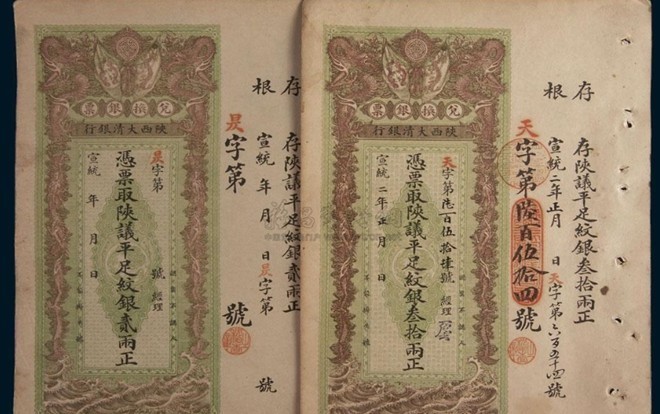 存根
存陝議平足紋銀叁拾兩正
宣統二年正月 日天字第六百五十四號
天字第陸百伍拾四號
兌換銀票
陝西大清銀行
天字第陸百伍拾肆號 經理
憑票取陝議平足紋銀叁拾兩正
宣統二年正月 日
存根
存陝議平足紋銀貳兩正
宣統 年 月 日昃字第 號
昃字第 號
兌換銀票
陝西大清銀行
昃字第 號 經理
憑票取陝議平足紋銀貳兩正
宣統 年 月 日